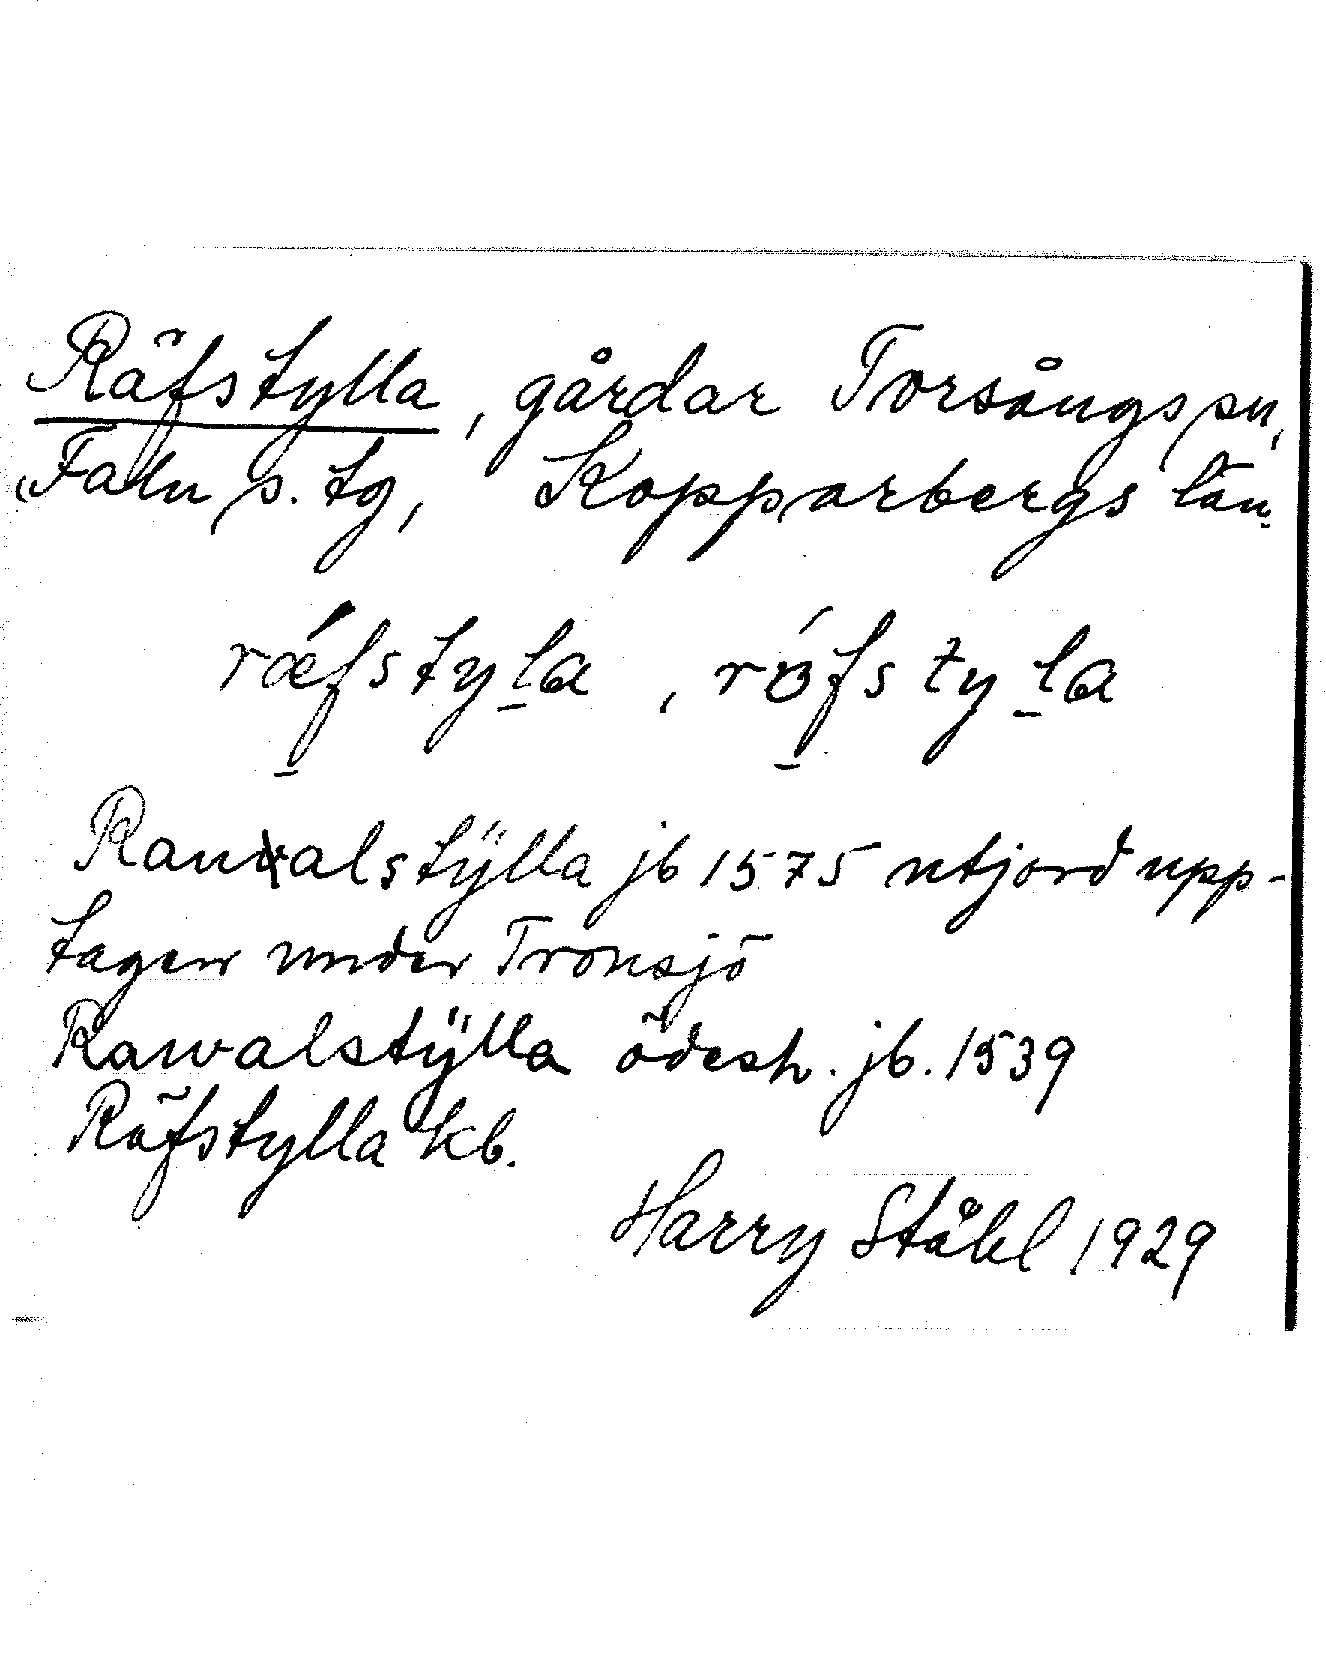 Räfstylla, gårdar Torsångs sn,
Falu s. tg, Kopparbergs län.
rǽfstyla, rɞ́fstyla
Rauvalstÿlla jb 1575 utjord upp-
tagen under Tronsjö
Rawalstÿlla ödesh. jb. 1539
Räfstylla kb.
Harry Ståhl 1929